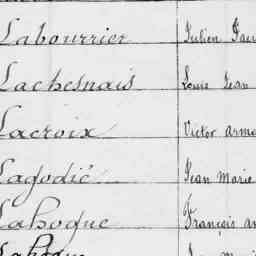 Labourrier Julien
Lachesnais Louis Jean
Lacroix Victor
Lagodié Jean Marie
Lahogue François